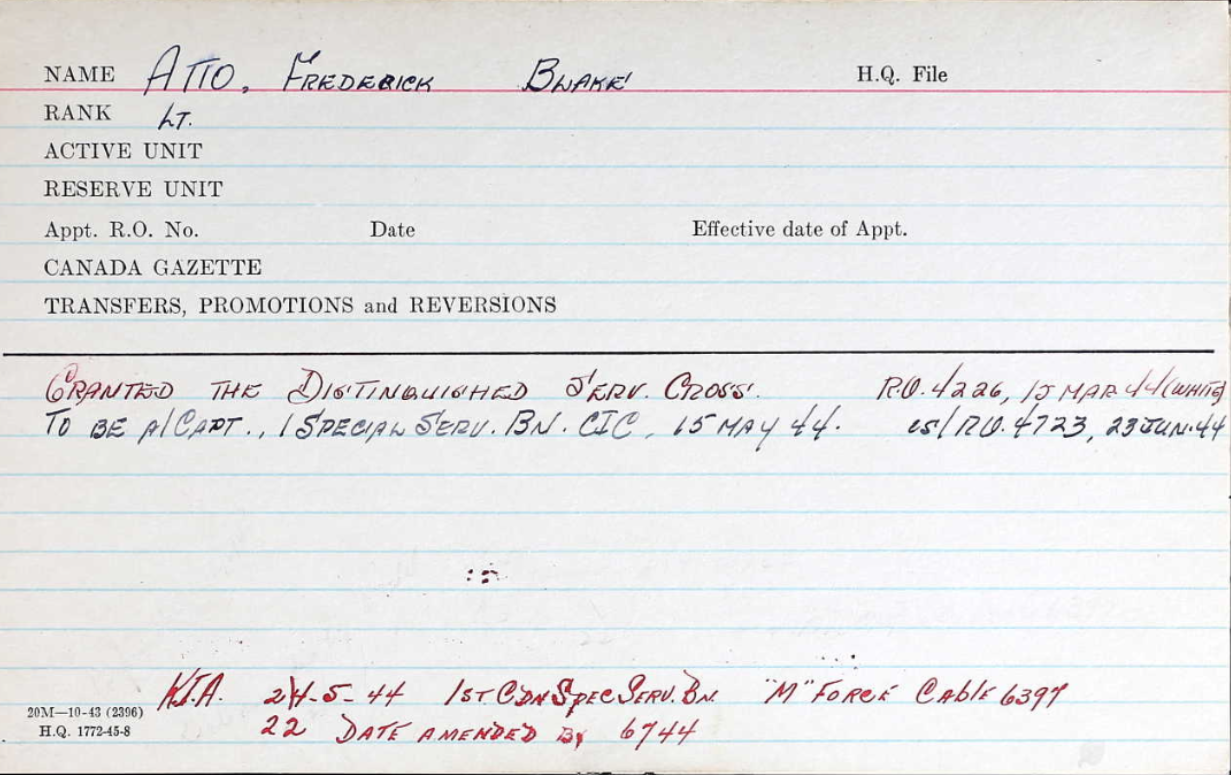 NAME ATTO, FREDERICK BLAKE H.Q. File
RANK LT.
ACTIVE UNIT
RESERVE UNIT
Appt. R.O. No. Date Effective date of Appt.
CANADA GAZETTE
TRANSFERS, PROMOTIONS and REVERSIONS
GRANTED THE DISTINGUISHED SERV. CROSS. R.O. 4226, 15 MAR 44 (WHITE)
TO BE A/CAPT., 1 SPECIAL SERV. BN. CIC, 15 MAY 44. R.O. 4723, 23 JUN. 44
K.I.A. 24-5-44 1ST CDN SPEC SERV. BN. "M" FORCE CABLE 6397
20M—10-43 (2396)
H.Q. 1772-45-8
22 DATE AMENDED By 6744